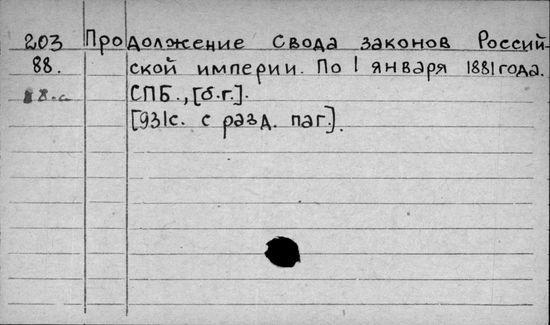 203 Продолжение Свода законов Россий-
88. ской империи. По 1 января 1881 года.
СПБ., [б.г.].
[931с. с разд. паг.].